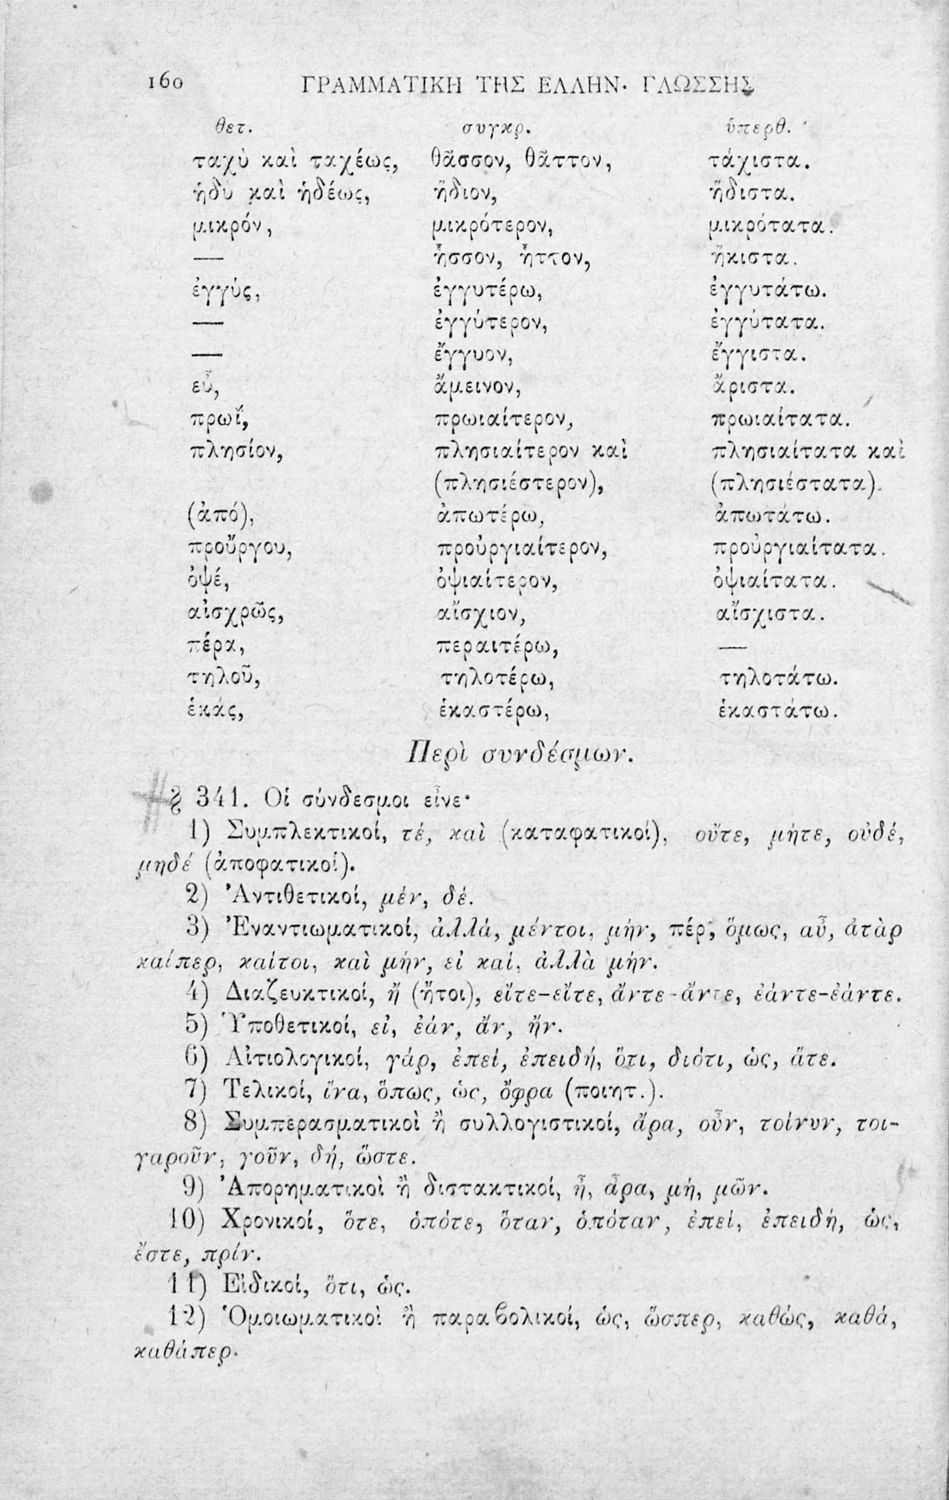 160 ΓΡΑΜΜΑΤΙΚΗ ΤΗΣ ΕΛΛΗΝ. ΓΛΩΣΣΗΣ
θετ. συγκρ. ὑπερθ.
ταχὺ καὶ ταχέως, θᾶσσον, θᾶττον, τάχιστα.
ἡδὺ καὶ ἡδέως, ἥδιον, ἥδιστα.
μικρόν, μικρότερον, μικρότατα.
— ἧσσον, ἧττον, ἥκιστα.
ἐγγύς, ἐγγυτέρω, ἐγγυτάτω.
— ἐγγύτερον, ἐγγύτατα.
— ἔγγυον, ἔγγιστα.
εὖ, ἄμεινον, ἄριστα.
πρωΐ, πρωιαίτερον, πρωιαίτατα.
πλησίον, πλησιαίτερον καὶ πλησιαίτατα καὶ
(πλησιέστερον), (πλησιέστατα).
(ἀπό), ἀπωτέρω, ἀπωτάτω.
προὔργου, προὐργιαίτερον, προὐργιαίτατα.
ὀψέ, ὀψιαίτερον, ὀψιαίτατα.
αἰσχρῶς, αἴσχιον, αἴσχιστα.
πέρα, περαιτέρω, —
τηλοῦ, τηλοτέρω, τηλοτάτω.
ἑκάς, ἑκαστέρω, ἑκαστάτω.
Περὶ συνδέσμων.
§ 341. Οἱ σύνδεσμοι εἶνε·
1) Συμπλεκτικοί, τέ, καὶ (καταφατικοί), οὔτε, μήτε, οὐδέ,
μηδέ (ἀποφατικοί).
2) Ἀντιθετικοί, μέν, δέ.
3) Ἐναντιωματικοί, ἀλλά, μέντοι, μήν, πέρ, ὅμως, αὖ, ἀτὰρ
καίπερ, καίτοι, καὶ μήν, εἰ καί, ἀλλὰ μήν.
4) Διαζευκτικοί, ἤ (ἤτοι), εἴτε–εἴτε, ἄντε–ἄντε, ἐάντε–ἐάντε.
5) Ὑποθετικοί, εἰ, ἐάν, ἄν, ἤν.
6) Αἰτιολογικοί, γάρ, ἐπεί, ἐπειδή, ὅτι, διότι, ὡς, ἅτε.
7) Τελικοί, ἵνα, ὅπως, ὡς, ὄφρα (ποιητ.).
8) Συμπερασματικοὶ ἢ συλλογιστικοί, ἄρα, οὖν, τοίνυν, τοι-
γαροῦν, γοῦν, δή, ὥστε.
9) Ἀπορηματικοὶ ἢ διστακτικοί, ἦ, ἆρα, μή, μῶν.
10) Χρονικοί, ὅτε, ὁπότε, ὅταν, ὁπόταν, ἐπεί, ἐπειδή, ὡς,
ἔστε, πρίν.
11) Εἰδικοί, ὅτι, ὡς.
12) Ὁμοιωματικοὶ ἢ παραβολικοί, ὡς, ὥσπερ, καθώς, καθά,
καθάπερ.